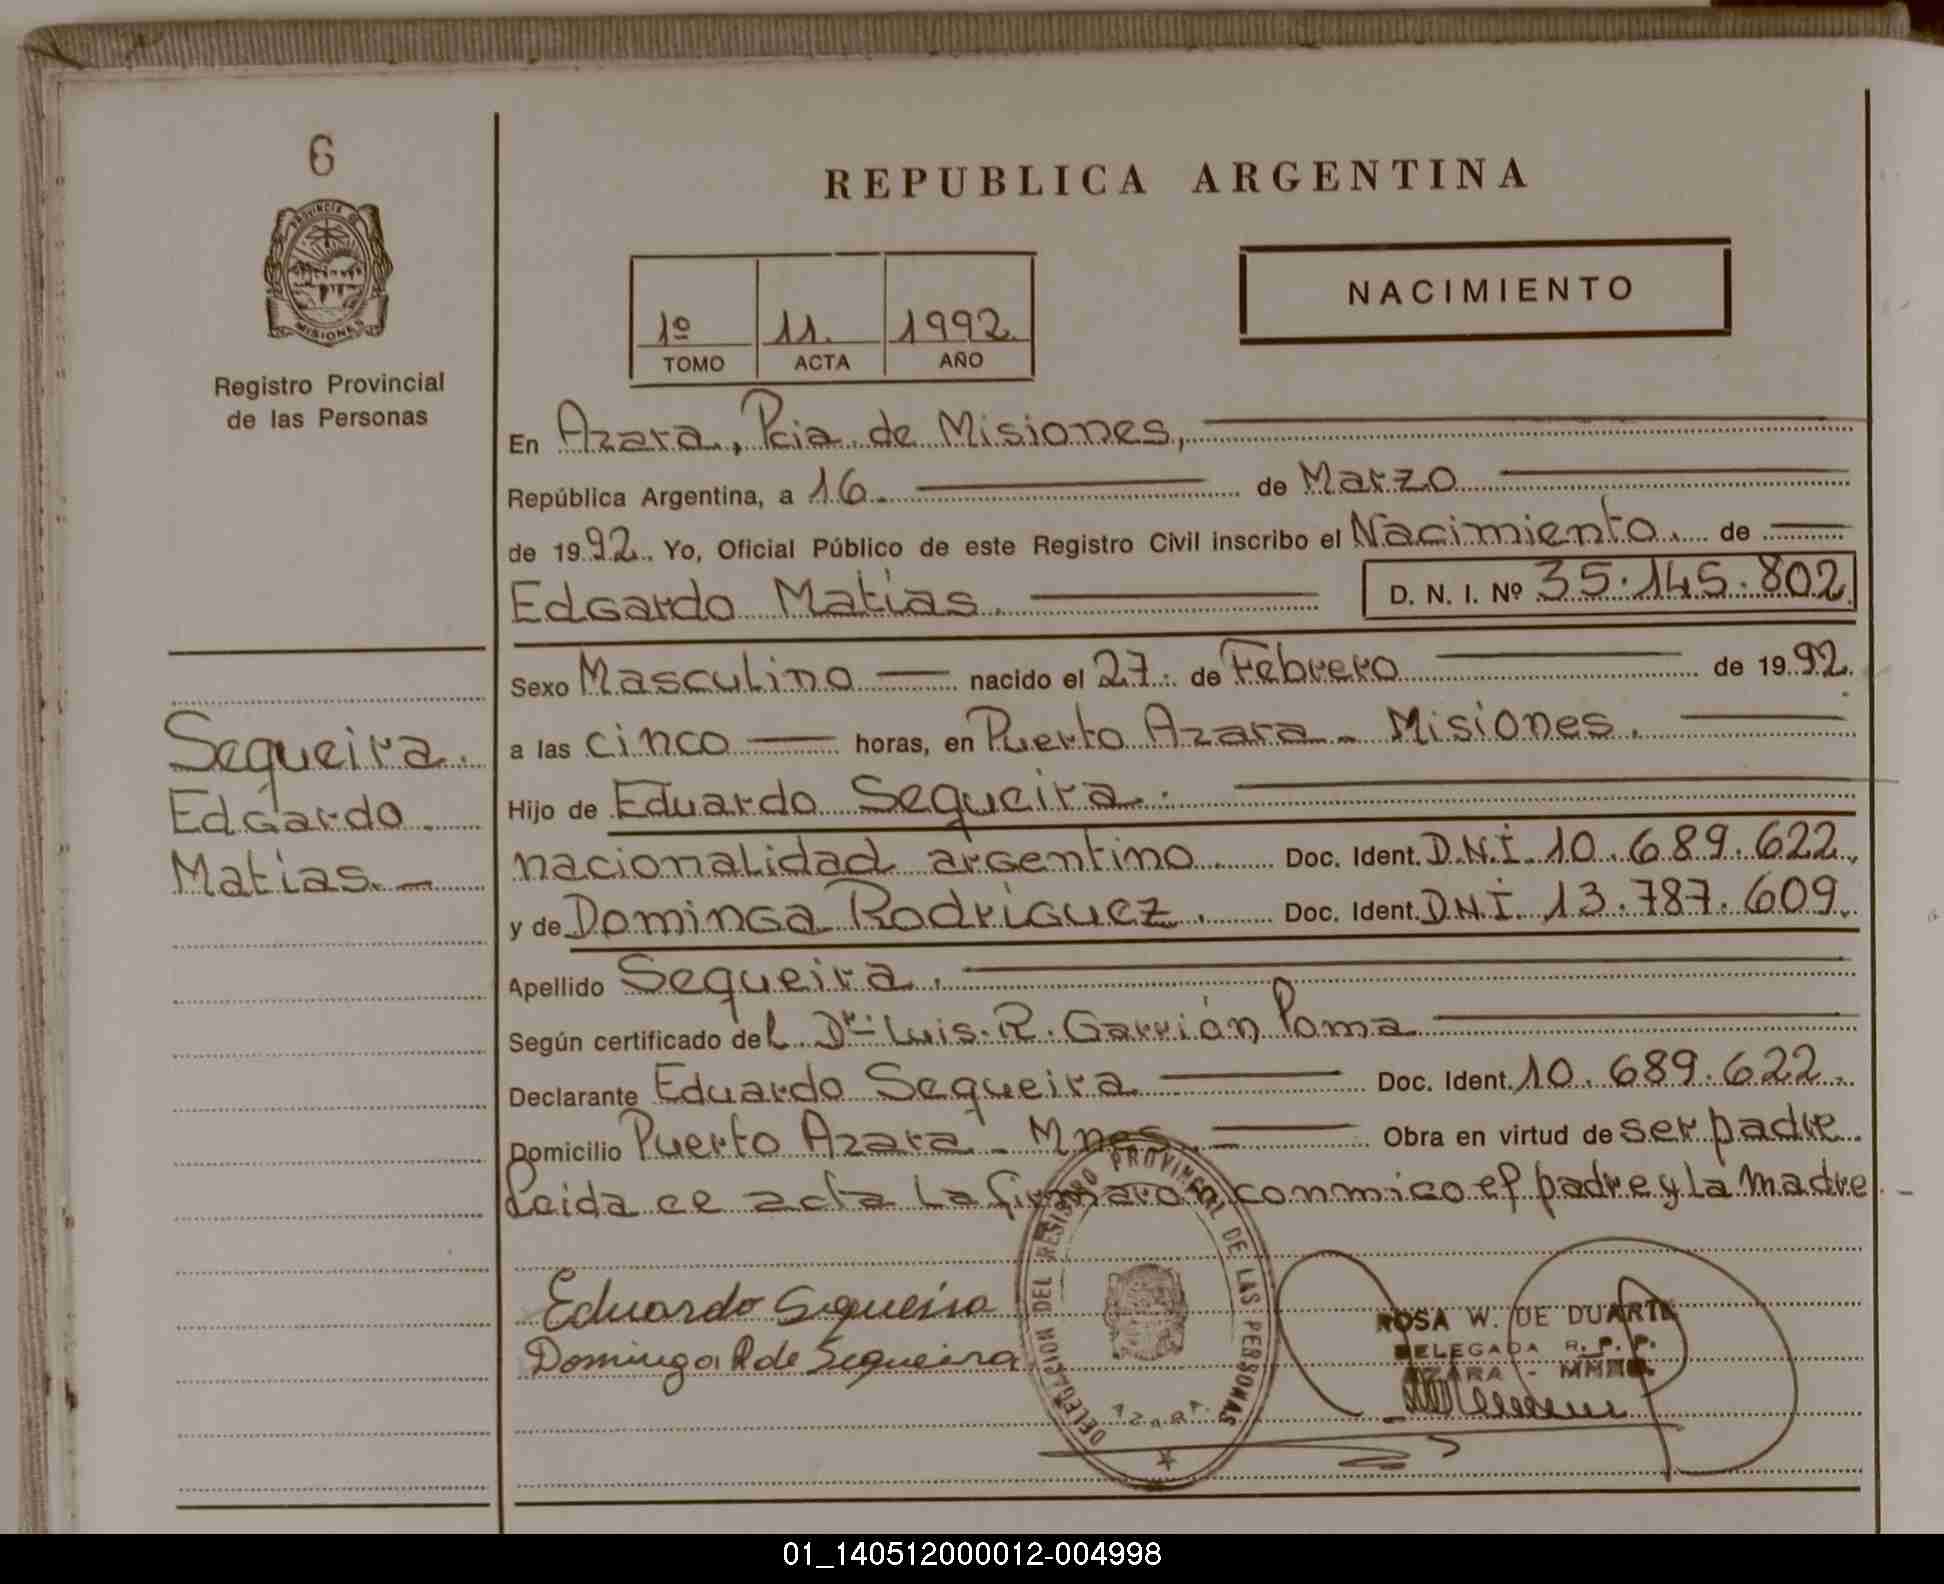 6
PROVINCIA DE
MISIONES
Registro Provincial
de las Personas
REPUBLICA ARGENTINA
1º 11. 1992.
TOMO ACTA AÑO
NACIMIENTO
En Azara, Pcia. de Misiones,
República Argentina, a 16. de Marzo
de 1992. Yo, Oficial Público de este Registro Civil inscribo el Nacimiento. de
Edgardo Matías. D. N. I. Nº 35.145.802
Sexo Masculino nacido el 27. de Febrero de 1992.
a las cinco horas, en Puerto Azara - Misiones.
Hijo de Eduardo Sequeira.
nacionalidad argentino Doc. Ident. D.N.I. 10.689.622.
y de Dominga Rodríguez. Doc. Ident. D.N.I. 13.787.609.
Apellido Sequeira.
Según certificado del Dr. Luis. R. Garrión Poma
Declarante Eduardo Sequeira Doc. Ident. 10.689.622.
Domicilio Puerto Azara - Mnes. Obra en virtud de ser padre
Leida ee acta la firmaron conmigo el padre y la madre. -
Sequeira.
Edgardo.
Matías. -
Eduardo Sequeira
Dominga R de Sequeira
DELEGACION DEL REGISTRO PROVINCIAL DE LAS PERSONAS
AZARA
ROSA W. DE DUARTE
DELEGADA R. P. P.
AZARA - MNES.
01_140512000012-004998